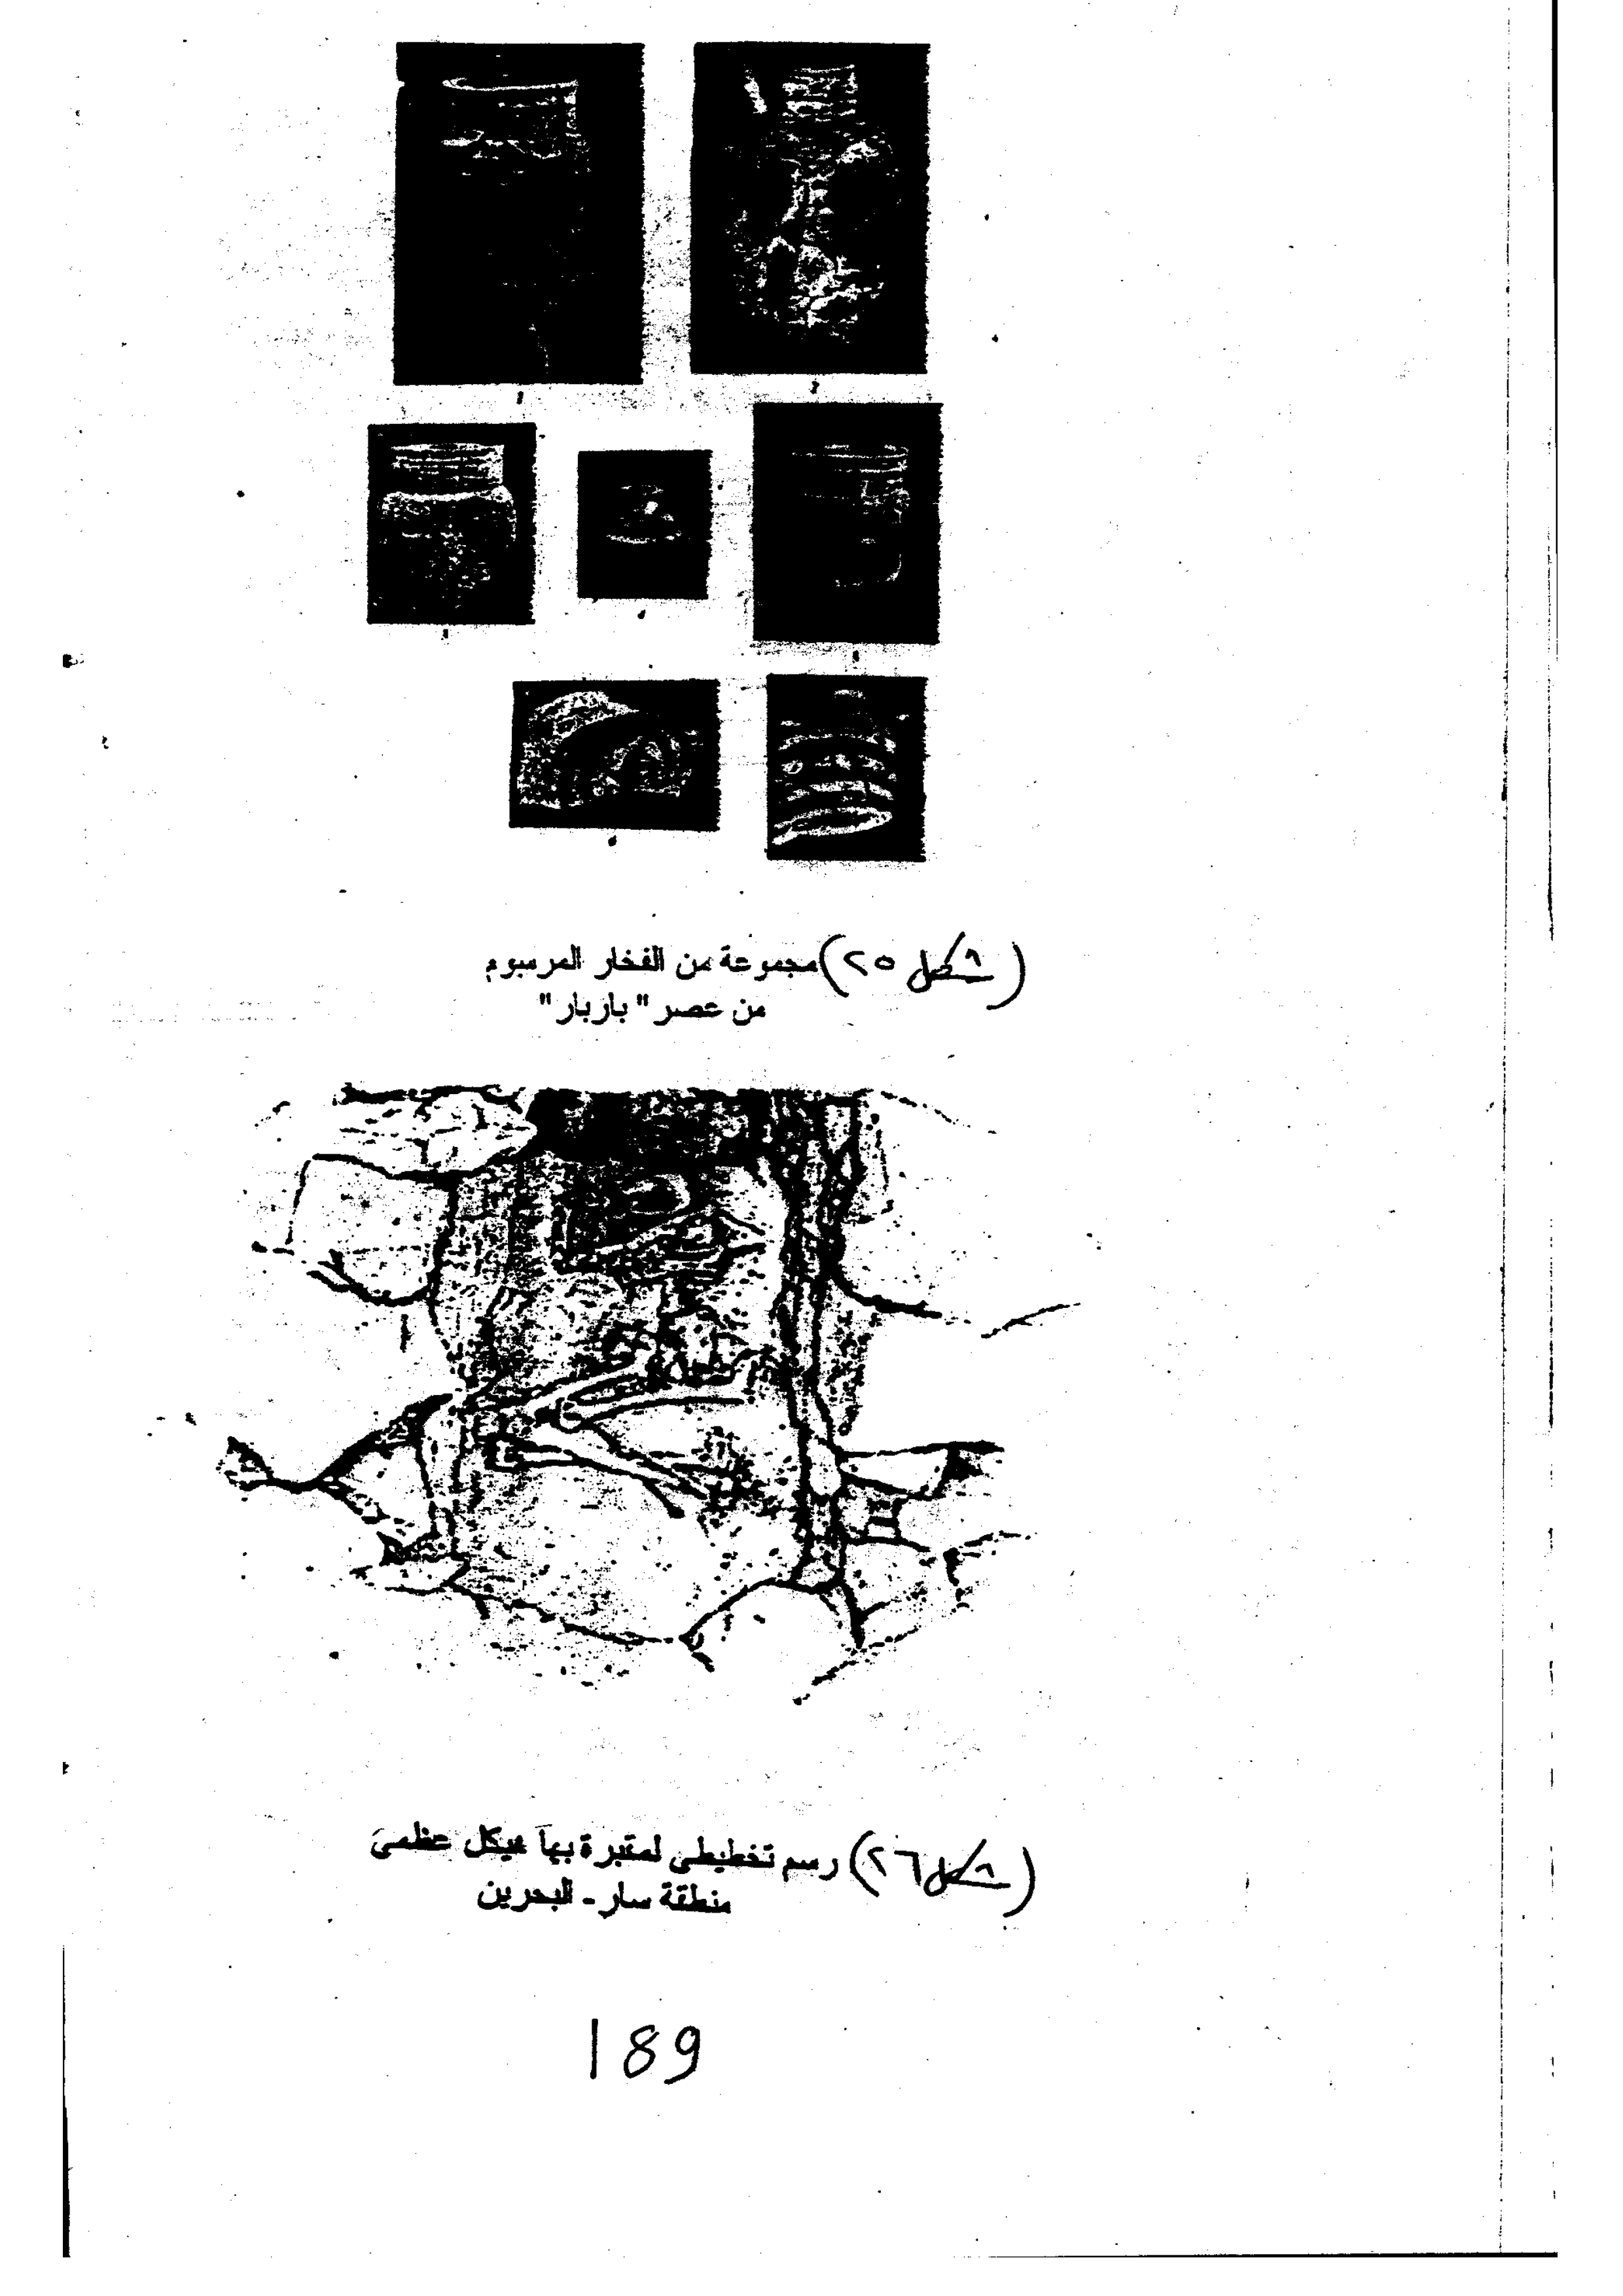 (شكل ٢٥) مجموعة من الفخار المرسوم
من عصر "باربار"
(شكل ٢٦) رسم تخطيطي لمقبرة بها هيكل عظمي
منطقة سار - البحرين
189